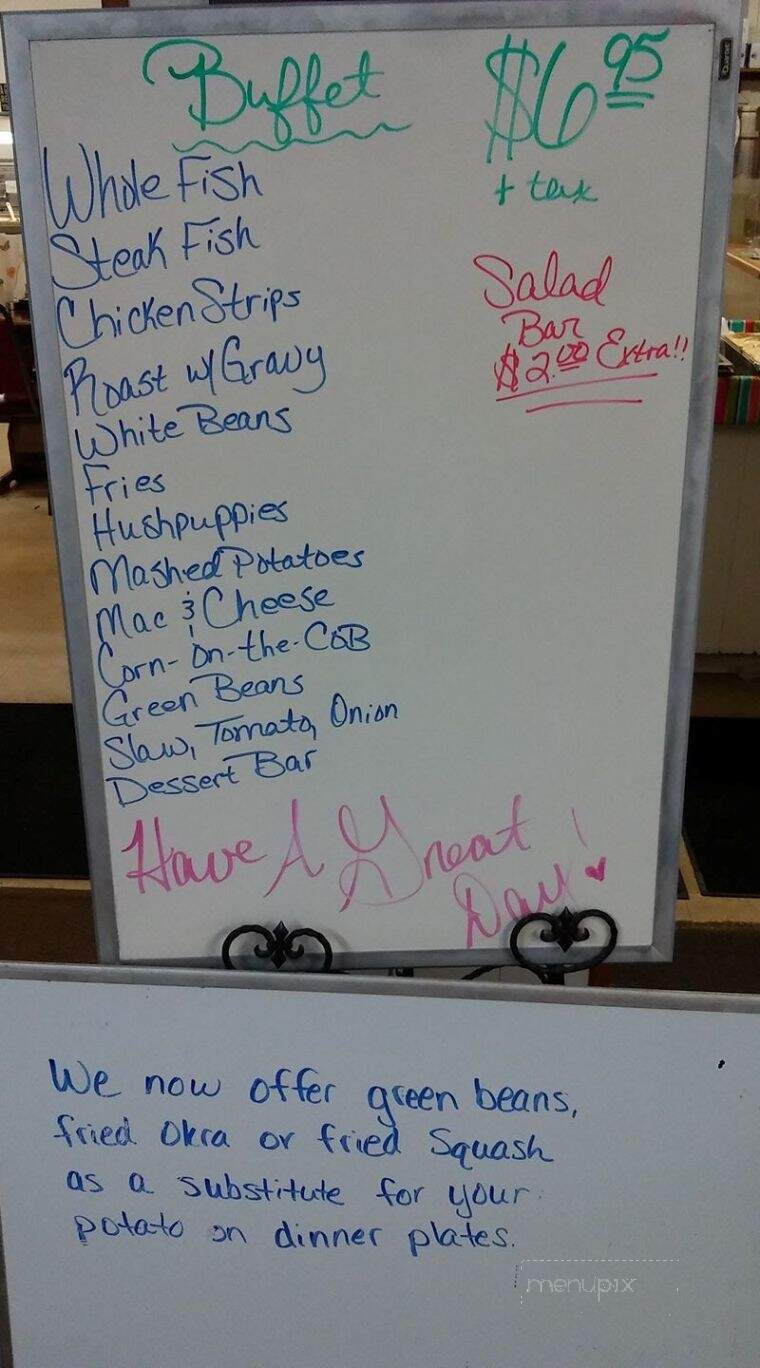 Buffet
$6.95
+ tax
Whole Fish
Steak Fish
Chicken Strips
Roast w/ Gravy
White Beans
Fries
Hushpuppies
Mashed Potatoes
Mac & Cheese
Corn-on-the-CoB
Green Beans
Slaw, Tomato, Onion
Dessert Bar
Salad
Bar
$2.00 Extra!!
Have A Great
Day!
We now offer green beans,
fried Okra or fried Squash
as a substitute for your
potato on dinner plates.
menupix